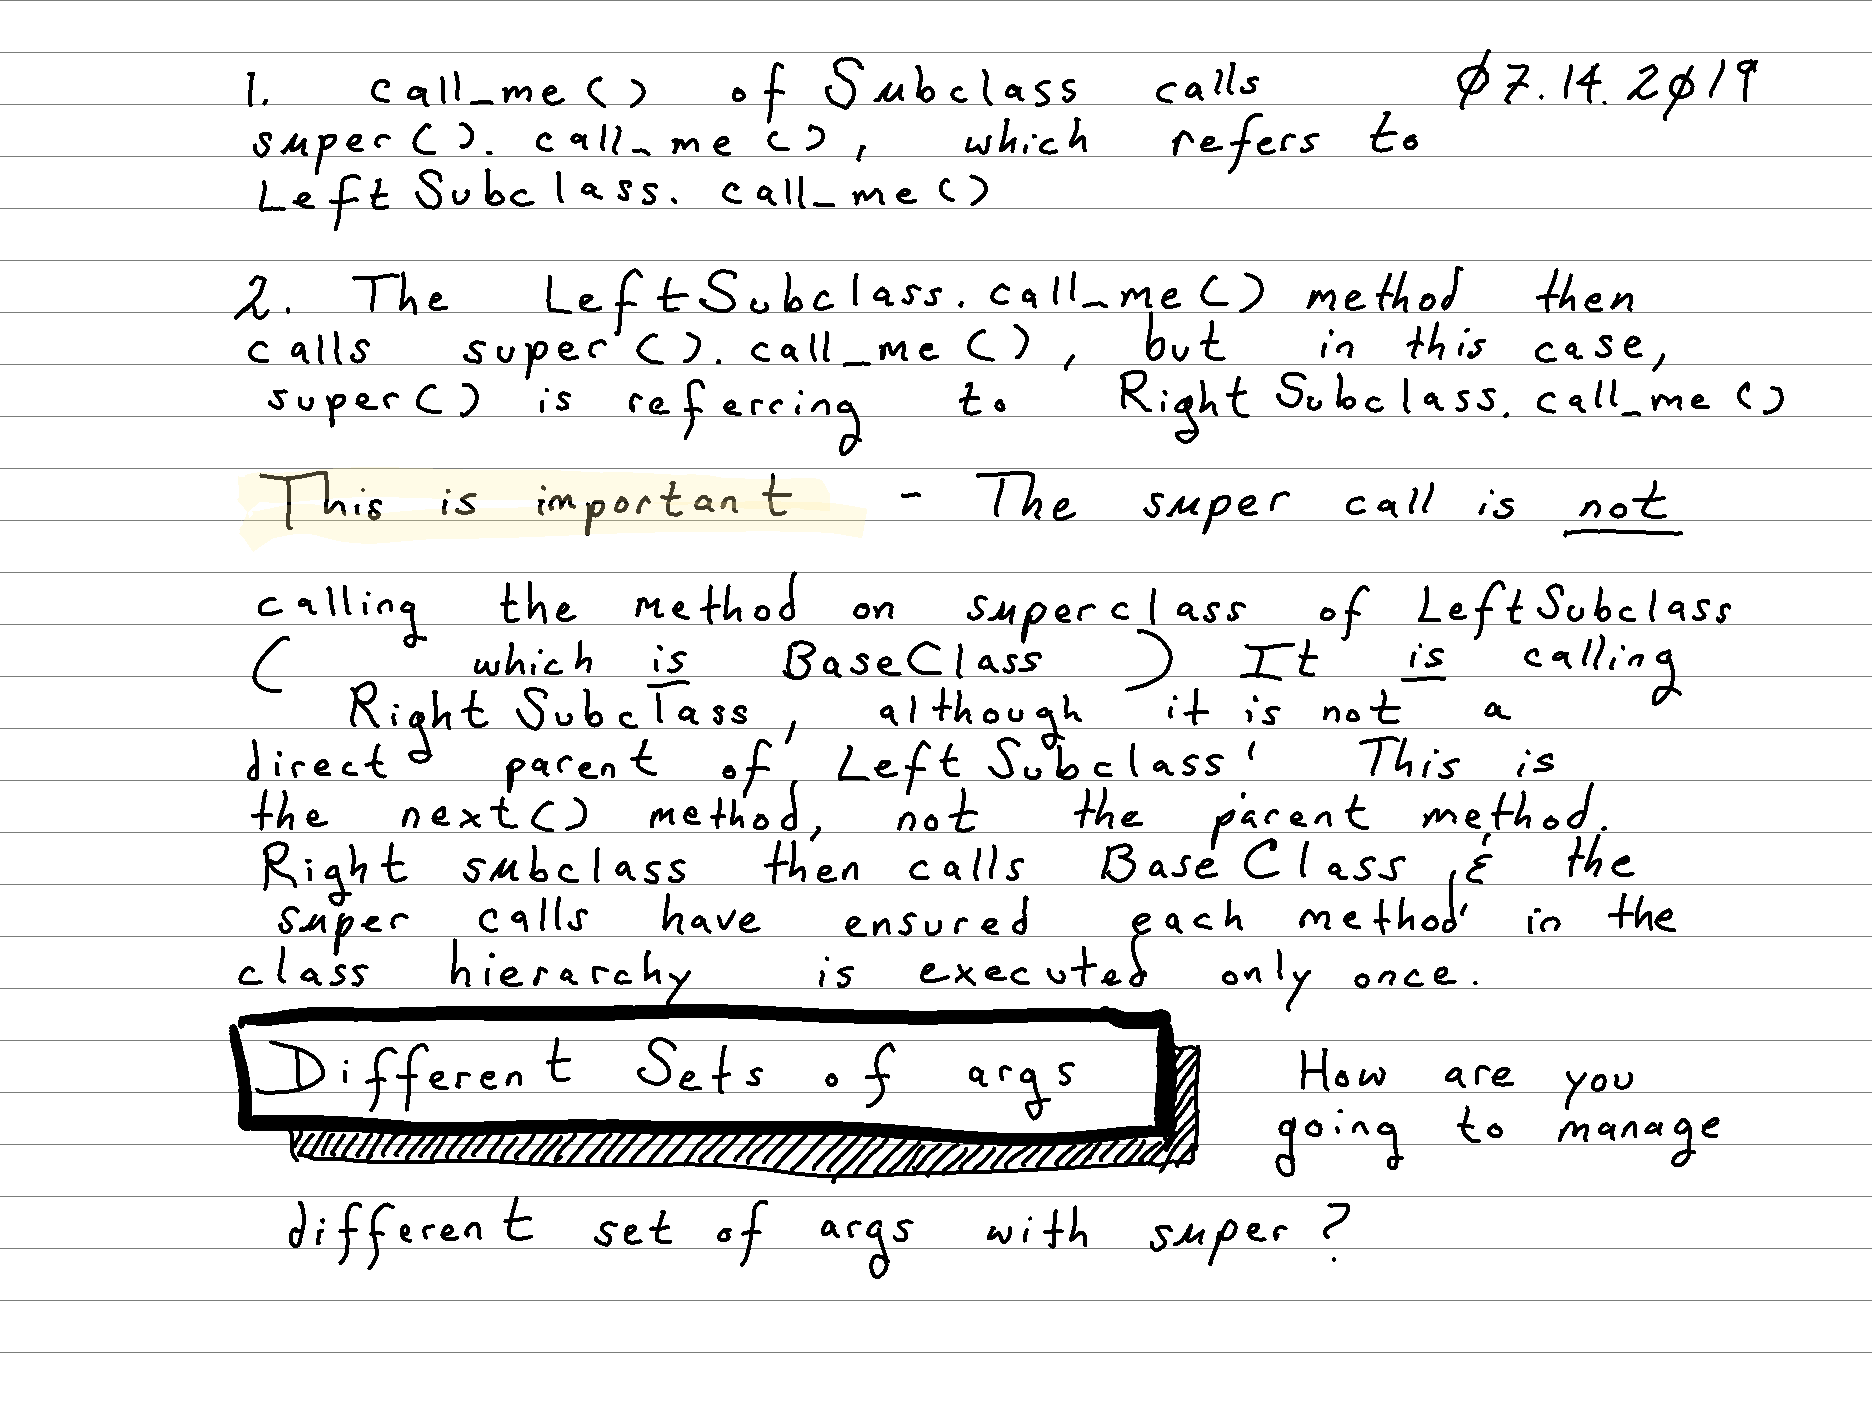 1. call_me() of Subclass calls 07.14.2019
super().call_me(), which refers to
LeftSubclass.call_me()
2. The LeftSubclass.call_me() method then
calls super().call_me(), but in this case,
super() is referring to RightSubclass.call_me()
This is important - The super call is not
calling the method on superclass of LeftSubclass
( which is BaseClass ) It is calling
RightSubclass, although it is not a
direct parent of LeftSubclass! This is
the next() method, not the parent method.
Right subclass then calls BaseClass, & the
super calls have ensured each method in the
class hierarchy is executed only once.
Different Sets of args How are you
going to manage
different set of args with super?